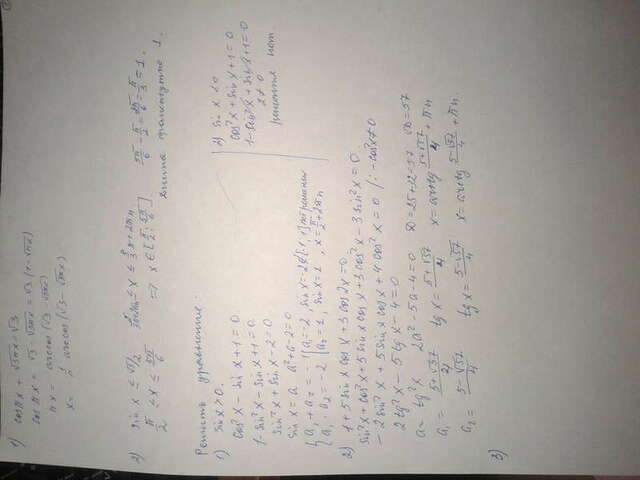 1) cos πx + √sin πx = √3
cos πx = √3 - √sin πx = √3 (1 - √sin x)
πx = arccos (√3 - √sin x)
2) sin x ≤ √1/2
π/2 ≤ x ≤ 5π/6
=> x ∈ [π/2; 5π/6]
5π/6 - π/2 = 2π/6 = π/3 = 1.
Длина промежутка 1.
Решить уравнение:
1) sin x > 0.
cos²x - sin x + 1 = 0.
1 - sin²x - sin x + 1 = 0.
sin²x + sin x - 2 = 0.
sin x = a a² + a - 2 = 0
{ a₁ + a₂ = -1 | a₁ = -2, sin x = -2 ∉ [-1; 1] нет решения
{ a₁ · a₂ = -2 | a₂ = 1, sin x = 1, x = π/2 + 2πn
2) sin x < 0
cos²x + sin x + 1 = 0
1 - sin²x + sin x + 1 = 0
2 ≠ 0
решения нет.
2) 1 + 5 sin x cos x + 3 cos 2x = 0
sin²x + cos²x + 5 sin x cos x + 3 cos²x - 3 sin²x = 0.
-2 sin²x + 5 sin x cos x + 4 cos²x = 0 /: -cos²x ≠ 0
2 tg²x - 5 tg x - 4 = 0
a = tg x 2a² - 5a - 4 = 0 D = 25 + 32 = 57 √D = √57
a₁ = 5+√57/4 tg x = 5+√57/4 x = arctg 5+√57/4 + πn
a₂ = 5-√57/4 tg x = 5-√57/4 x = arctg 5-√57/4 + πn.
3)